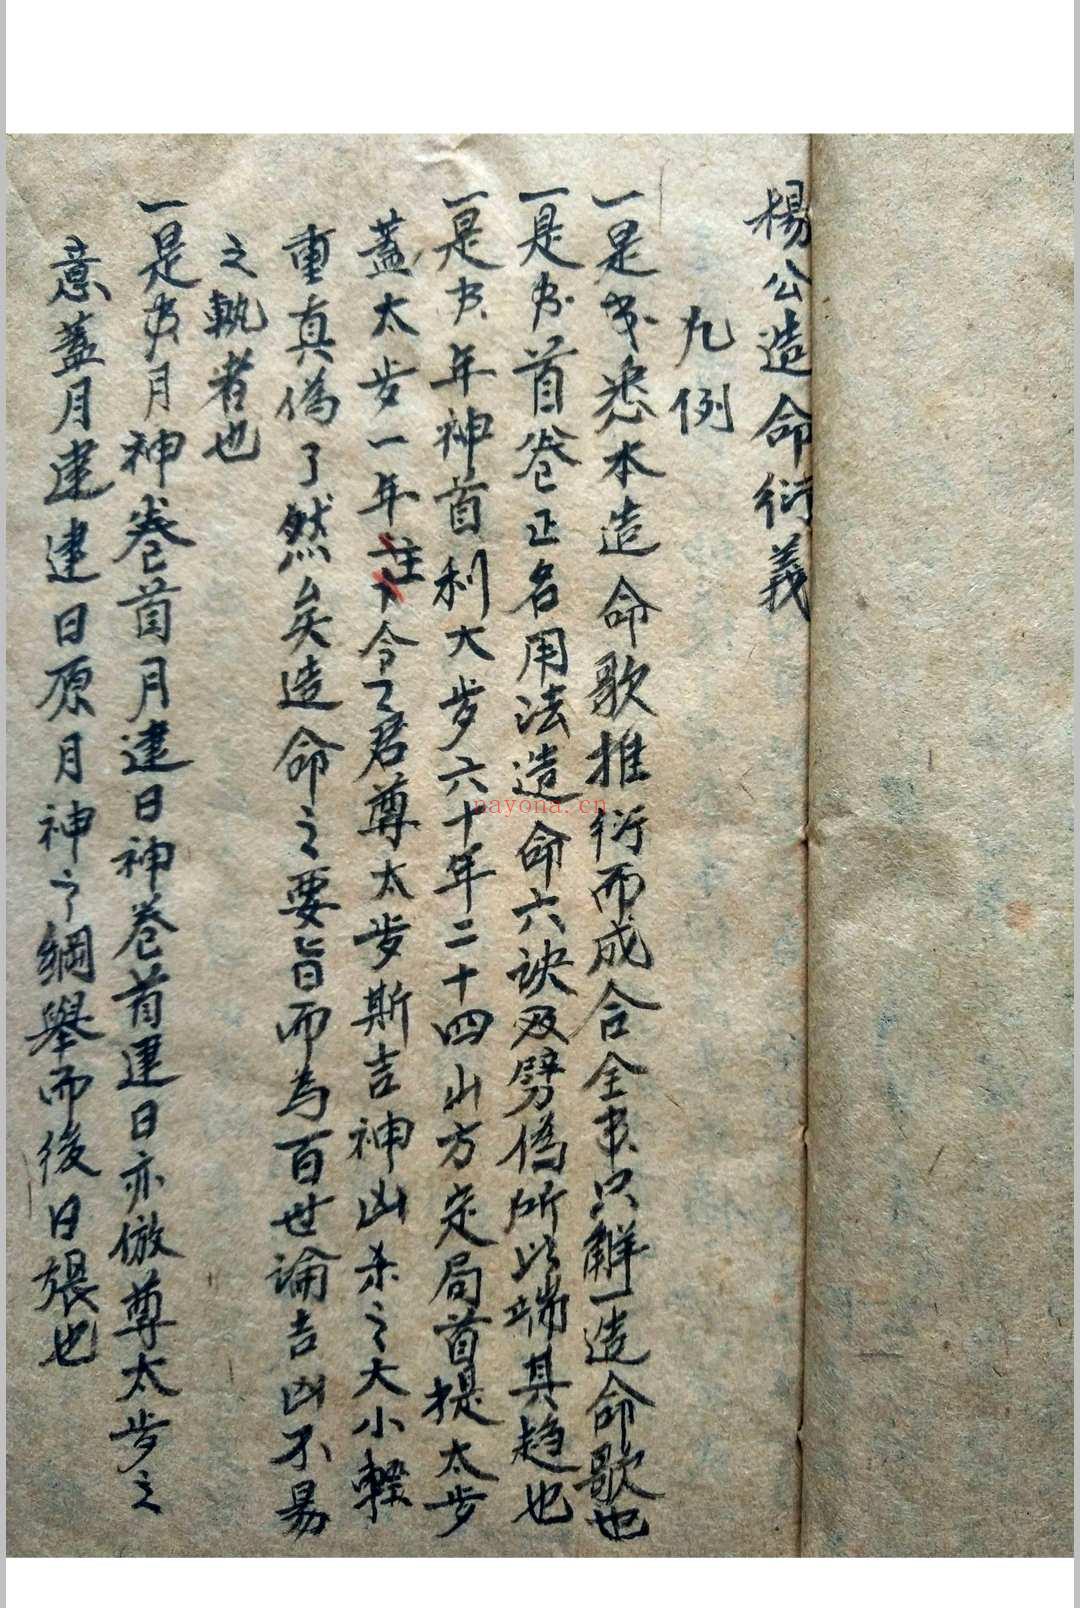 楊公造命衍義
凡例
一是书悉本造命歌推衍而成合全书只解一造命歌也
一是书首卷正名用法造命六诀及劈偽所以端其趋也
一是书年神首利太岁六十年二十四山方定局首提太岁
蓋太岁一年主令之君尊太岁斯吉神凶杀之大小輕
重真偽了然矣造命之要旨而為百世論吉凶不易
之執者也
一是书月神卷首月建日神卷首建日亦倣尊太岁之
意蓋月建建日原月神之綱舉而後日張也
nayona.cn